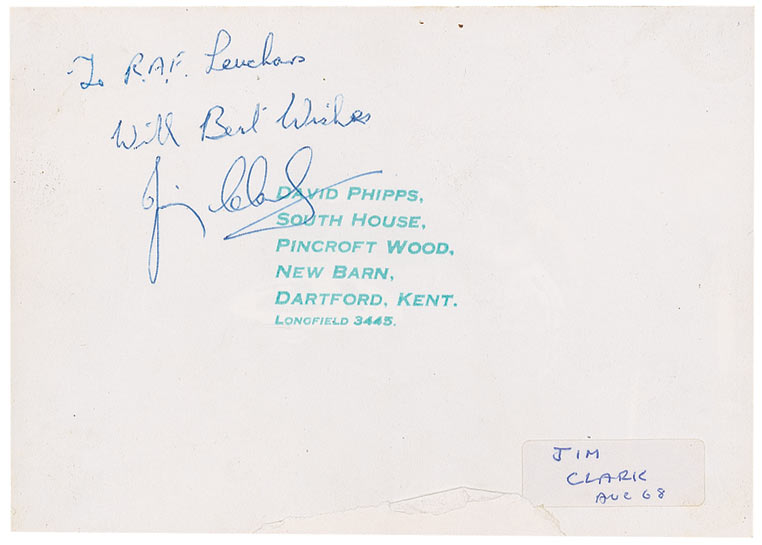 To R.A.F. Leuchars
With Best Wishes
Jim Clark
DAVID PHIPPS,
SOUTH HOUSE,
PINCROFT WOOD,
NEW BARN,
DARTFORD, KENT.
LONGFIELD 3445.
JIM
CLARK
AUG 68